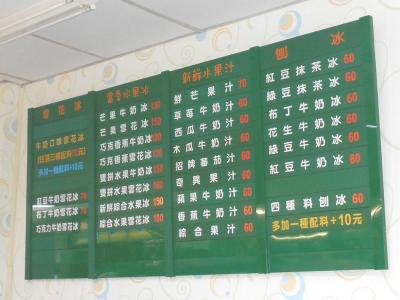 雪花冰
牛奶口味雪花冰
多加一種配料+10元
紅豆牛奶雪花冰
布丁牛奶雪花冰
巧克力牛奶雪花冰
水果冰
芒果牛奶冰
芒果雪花冰 150
巧克香蕉牛奶冰
巧克香蕉雪花冰
雙拼水果牛奶冰
雙拼水果雪花冰
新鮮綜合水果冰
綜合水果雪花冰
新鮮水果汁
鮮芒果汁 70
草莓牛奶汁 60
西瓜牛奶汁 60
木瓜牛奶汁 60
招牌蕃茄汁 60
奇異果汁 60
蘋果牛奶汁 60
香蕉牛奶汁 60
綜合果汁 60
刨冰
紅豆抹茶冰 60
綠豆抹茶冰 60
布丁牛奶冰 60
花生牛奶冰 60
綠豆牛奶冰 60
紅豆牛奶冰 60
四種料刨冰 60
多加一種配料+10元